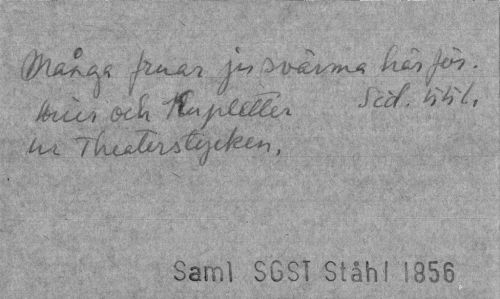 Många fruar ju svärma här för.
Arier och Kupletter Scd. titl.
ur Theaterstycken.
Saml SGST Ståhl 1856